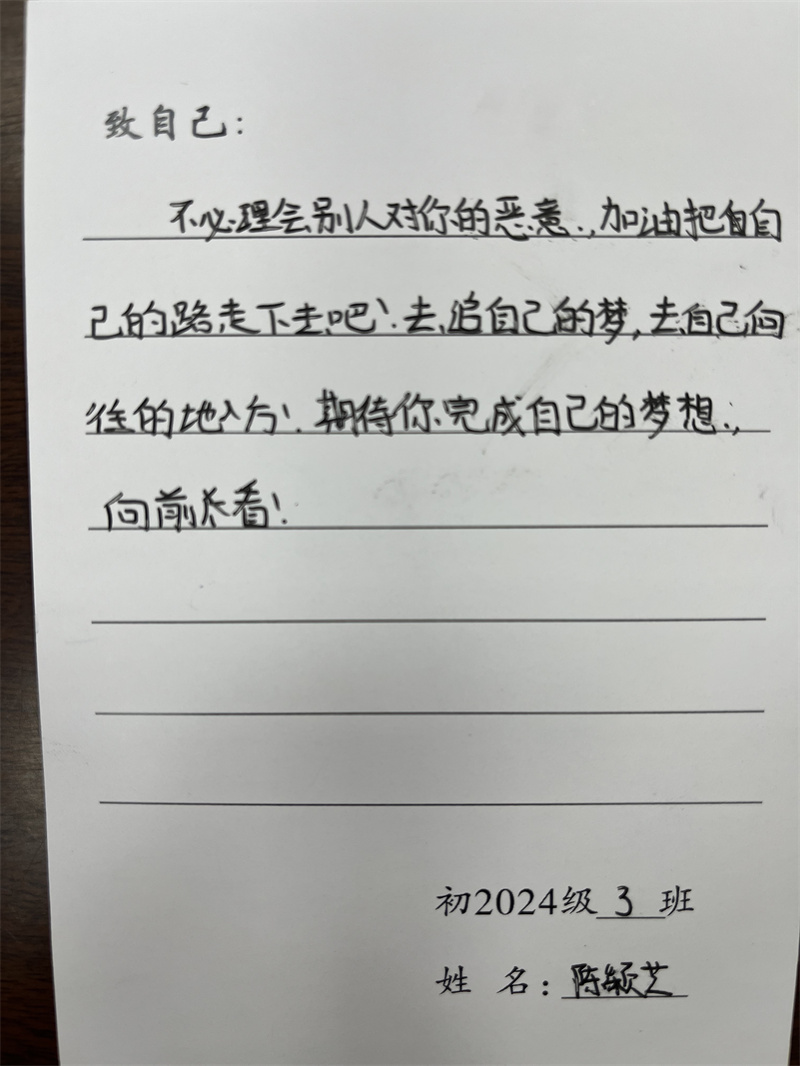 致自己：
不必理会别人对你的恶意，加油把自自
己的路走下去吧！去追自己的梦，去自己向
往的地方！期待你完成自己的梦想，
向前看！
初2024级3班
姓 名：陈颖芝